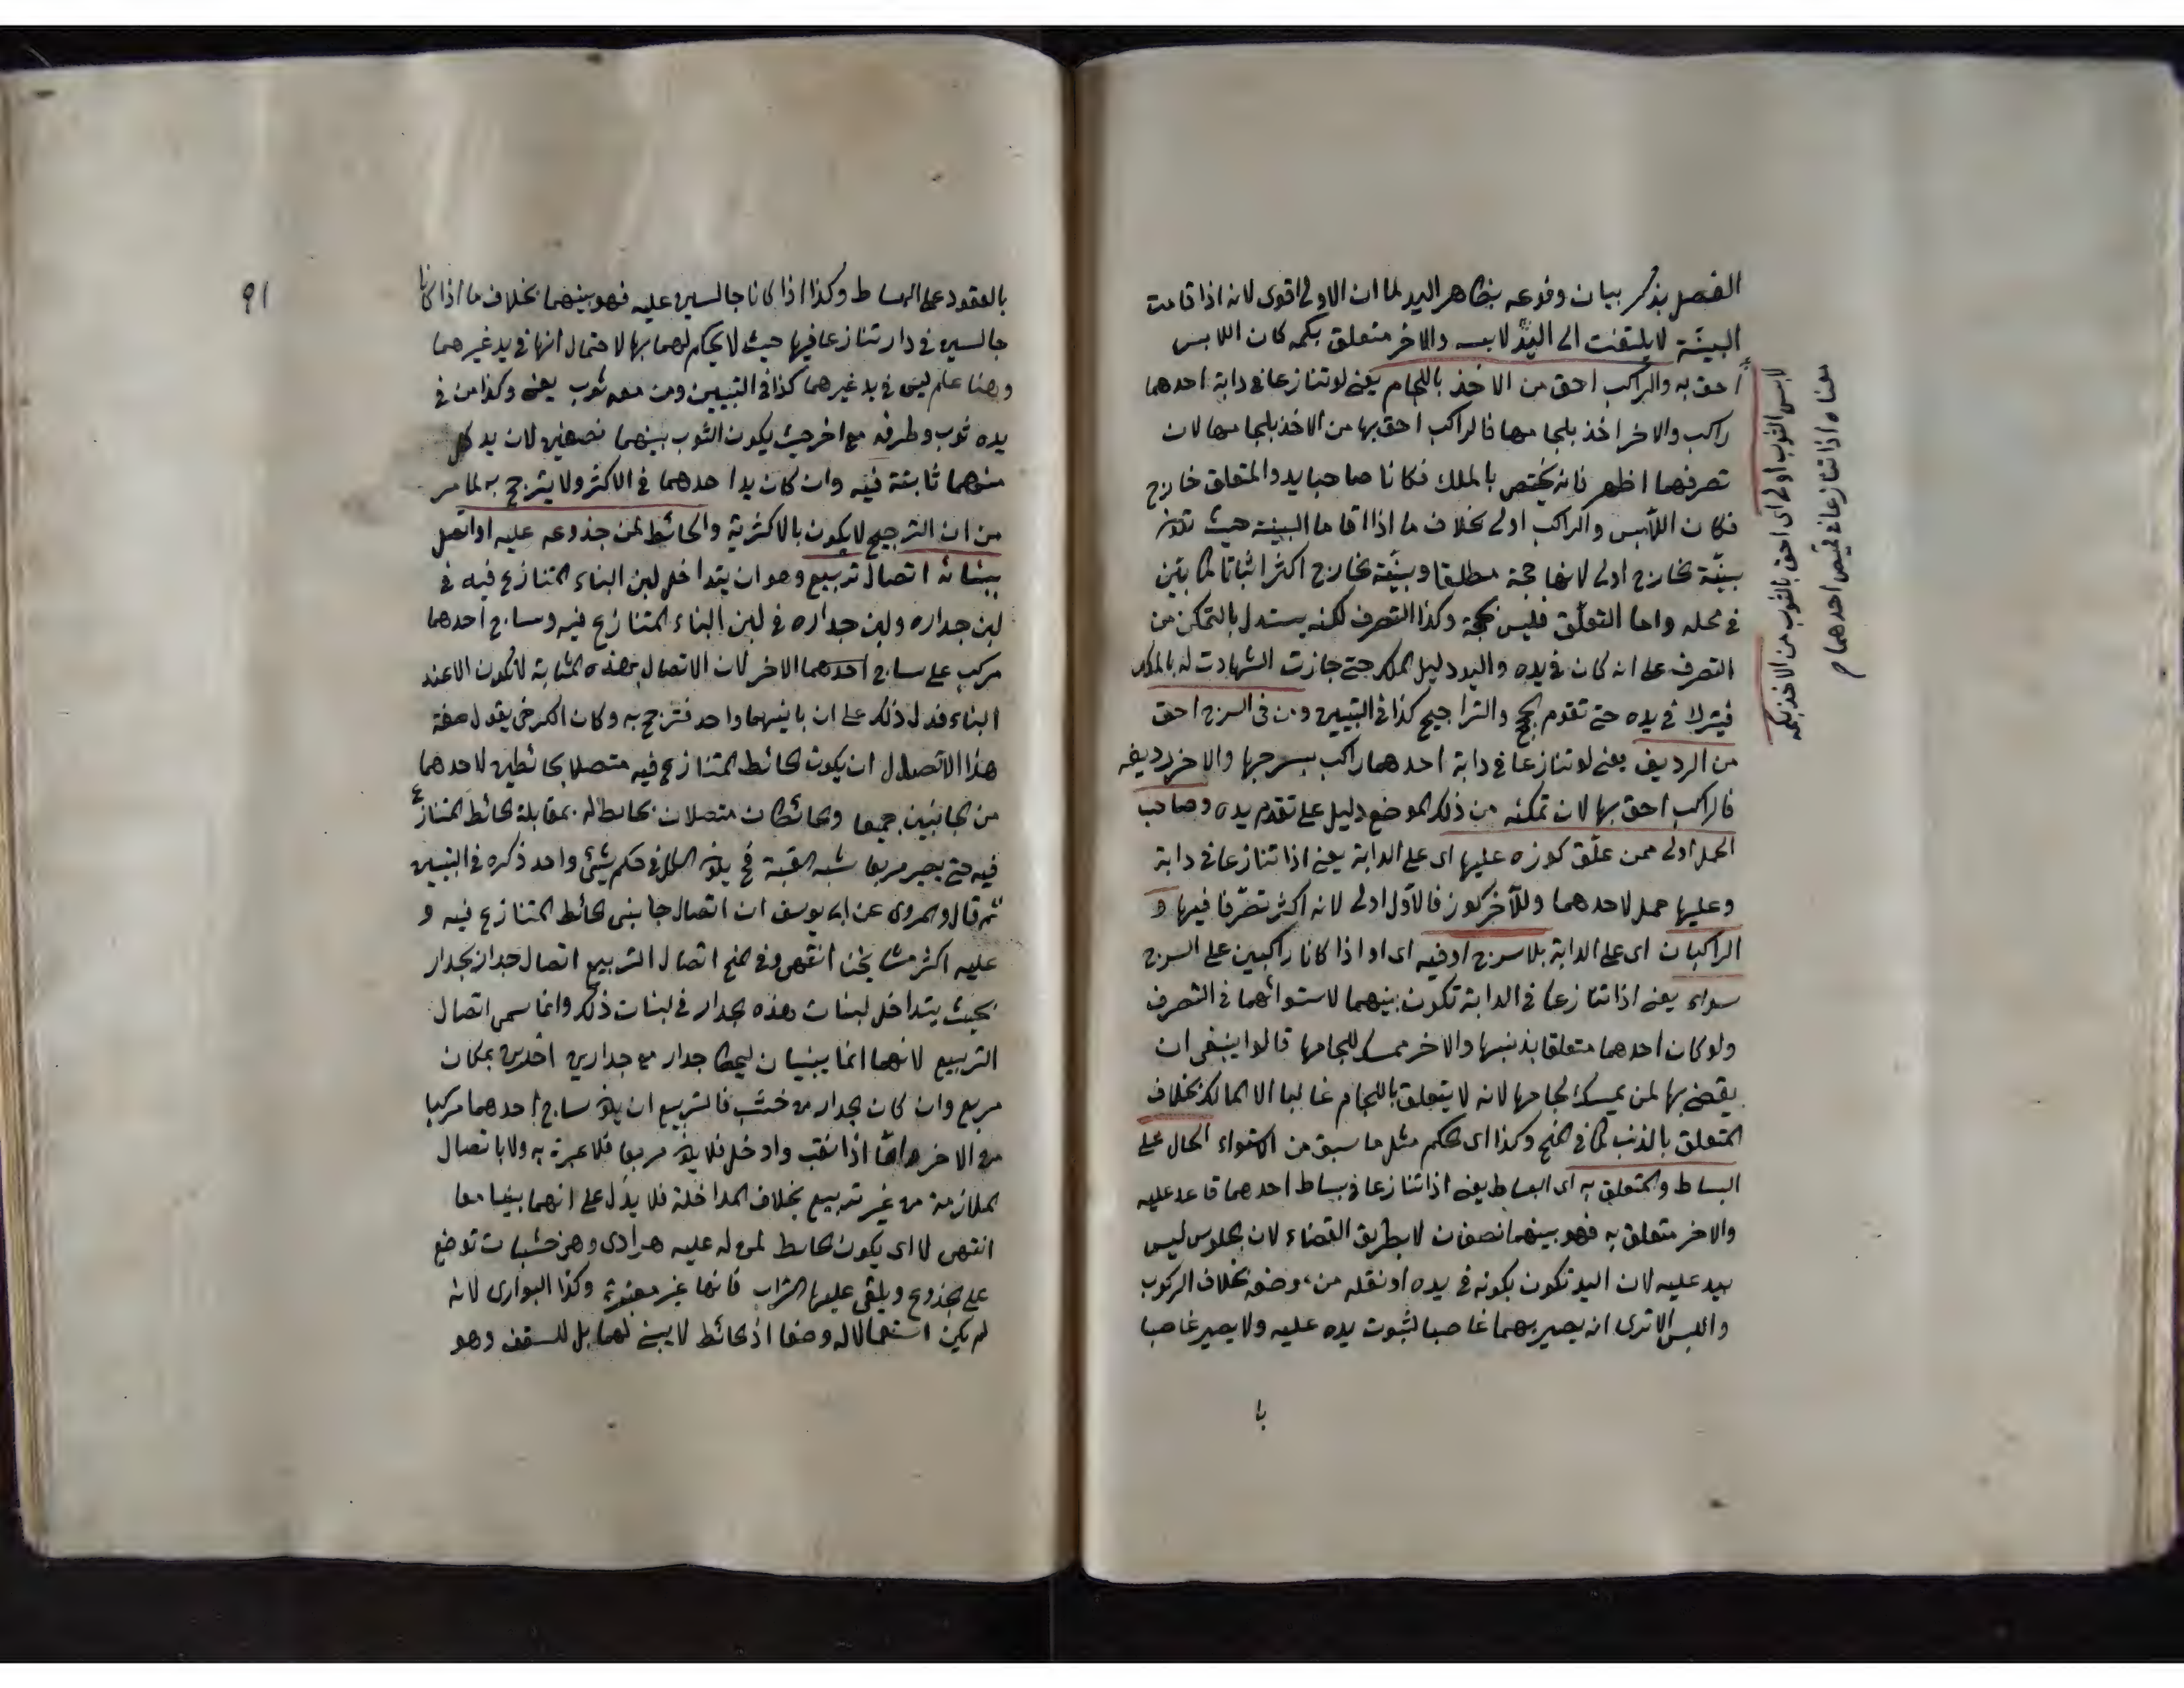 الفصل بذكر بيان وقوعه بظاهر اليد لما ان الاولى اقوى لانه اذا قامت
البينة لا يلتفت الى اليد لابسه والاخر متعلق بكمه كان اللابس
احق به والراكب احق من الاخذ باللجام يعنى لو تنازعا فى دابة احدهما
راكب والاخر اخذ بلجامها فالراكب احق بها من الاخذ بلجامها لان
تصرفهما اظهر فانه يختص بالملك فكانا صاحبا يد والمتعلق خارج
فكان اللابس والراكب اولى بخلاف ما اذا اقاما البينة حيث تكون
بينة الخارج اولى لانها حجة مطلقا وبينة الخارج اكثر اثباتا كما بين
فى محله واما التعلق فليس بحجة وكذا التصرف لكنه يستدل بالتمكن من
التصرف على انه كان فى يده واليد دليل الملك حتى جازت الشهادت له بالملك
فيترك فى يده حتى تقوم الحجج والتراجيح كذا فى التبيين ومن فى السرج احق
من الرديف يعنى لو تنازعا فى دابة احدهما راكب بسرجها والاخر رديفه
فالراكب احق بها لان تمكنه من ذلك الموضع دليل على تقدم يده وصاحب
الحمل اولى ممن علق كوزه عليها اى على الدابة يعنى اذا تنازعا فى دابة
وعليها حمل لاحدهما وللآخر كوز فالأول اولى لانه اكثر تصرفا فيها و
الراكبان اى على الدابة بلا سرج او فيه اى او اذا كانا راكبين على السرج
سواء يعنى اذا تنازعا فى الدابة تكون بينهما لاستوائهما فى التصرف
ولو كان احدهما متعلقا بذنبها والاخر ممسك للجامها قالوا ينبغى ان
يقضى بها لمن يمسك لجامها لانه لا يتعلق باللجام غالبا الا المالك بخلاف
المتعلق بالذنب كما فى المنح وكذا اى الحكم مثل ما سبق من استواء الحال على
البساط والمتعلق به اى البساط يعنى اذا تنازعا فى بساط احدهما قاعد عليه
والاخر متعلق به فهو بينهما نصفان لا بطريق القضاء لان الجلوس ليس
بيد عليه لان اليد تكون بكونه فى يده او نقله من موضعه بخلاف الركوب
واللبس الا ترى انه يصير بهما غاصبا لثبوت يده عليه ولا يصير غاصبا
با
لابس الثوب اولى اى احق بالثوب من الاخذ بكمه
معناه اذا تنازعا فى قميص احدهما
٩١
بالعقود على البساط وكذا اذا كانا جالسين عليه فهو بينهما بخلاف ما اذا كانا
جالسين فى دار تنازعا فيها حيث لا يحكم لهما بها لاحتمال انها فى يد غيرهما
وهنا علم ليس فى يد غيرهما كذا فى التبيين ومن معه ثوب يعنى وكذا من فى
يده ثوب وطرفه مع اخر حيث يكون الثوب بينهما نصفين لان يد كل
منهما ثابتة فيه وان كان يد احدهما فى الاكثر ولا يترجح به لما مر
من ان الترجيح لا يكون بالاكثرية والحائط لمن جذوعه عليه او اتصل
ببنائه اتصال تربيع وهو ان يتداخل لبن البناء المتنازع فيه فى
لبن جداره ولبن جداره فى لبن البناء المتنازع فيه وساج احدهما
مركب على ساج احدهما الاخر لان الاتصال بهذه المثابة لا تكون الا عند
البناء فدل ذلك على ان بانيهما واحد فترجح به وكان الكرخى يقول صفة
هذا الاتصال ان يكون الحائط المتنازع فيه متصلا بحائطين لاحدهما
من الجانبين جميعا والحائطان متصلان بحائط له بمقابلة الحائط المتنازع
فيه حتى يصير مربعا شبه القبة فح يكون الكل فى حكم شيئ واحد ذكره فى التبيين
ثم قال والمروى عن ابى يوسف ان اتصال جانبى الحائط المتنازع فيه و
عليه اكثر مشايخنا انتهى وفى المنح اتصال التربيع اتصال جدار بجدار
بحيث يتداخل لبنات هذه الجدار فى لبنات ذلك وانما سمى اتصال
التربيع لانهما انما يبنيان ليحيطا جدار مع جدارين اخرين بمكان
مربع وان كان الجدار من خشب فالتربيع ان يكون ساج احدهما مركبا
من الاخر واما اذا نقب وادخل فلا يكون مربعا فلا عبرة به ولا باتصال
الملازمة من غير تربيع بخلاف المداخلة فلا يدل على انهما بنيا معا
انتهى لا اى يكون الحائط لمن له عليه هرادى وهى خشبات توضع
على الجذوع ويلقى عليها التراب فانها غير معتبرة وكذا البوارى لانه
لم يكن استعمالا له وضعا اذ الحائط لا يبنى لهما بل للسقف وهو